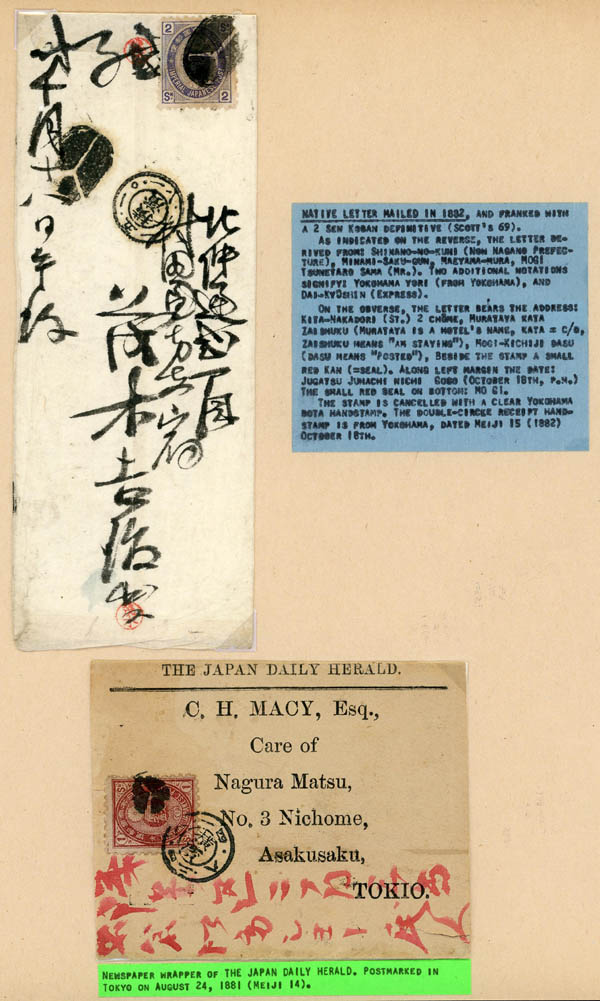 2
IMPERIAL JAPANESE POST
2
北仲通弐丁目
村田屋方在宿
茂木吉治出
十月十八日午後
NATIVE LETTER MAILED IN 1882, AND FRANKED WITH
A 2 SEN KOBAN DEFINITIVE (SCOTT'S 69).
AS INDICATED ON THE REVERSE, THE LETTER DE-
RIVED FROM: SHINANO-NO-KUNI (NOW NAGANO PREFEC-
TURE), MINAMI-SAKU-GUN, MAEYAMA-MURA, MOGI
TSUNETARO SAMA (MR.). TWO ADDITIONAL NOTATIONS
SIGNIFY: YOKOHAMA YORI (FROM YOKOHAMA), AND
DAI-KYŪSHIN (EXPRESS).
ON THE OBVERSE, THE LETTER BEARS THE ADDRESS:
KITA-NAKADORI (ST.) 2 CHŌME, MURATAYA KATA
ZAISHUKU (MURATAYA IS A HOTEL'S NAME, KATA = C/O,
ZAISHUKU MEANS "AM STAYING"), MOGI-KICHIJI DASU
(DASU MEANS "POSTED"), BESIDE THE STAMP A SMALL
RED KAN (=SEAL). ALONG LEFT MARGIN THE DATE:
JUGATSU JUHACHI NICHI GOGO (OCTOBER 18TH, P.M.)
THE SMALL RED SEAL ON BOTTOM: MO GI.
THE STAMP IS CANCELLED WITH A CLEAR YOKOHAMA
BOTA HANDSTAMP. THE DOUBLE-CIRCLE RECEIPT HAND-
STAMP IS FROM YOKOHAMA, DATED MEIJI 15 (1882)
OCTOBER 18TH.
THE JAPAN DAILY HERALD.
C. H. MACY, Esq.,
Care of
Nagura Matsu,
No. 3 Nichome,
Asakusaku,
TOKIO.
NEWSPAPER WRAPPER OF THE JAPAN DAILY HERALD. POSTMARKED IN
TOKYO ON AUGUST 24, 1881 (MEIJI 14).